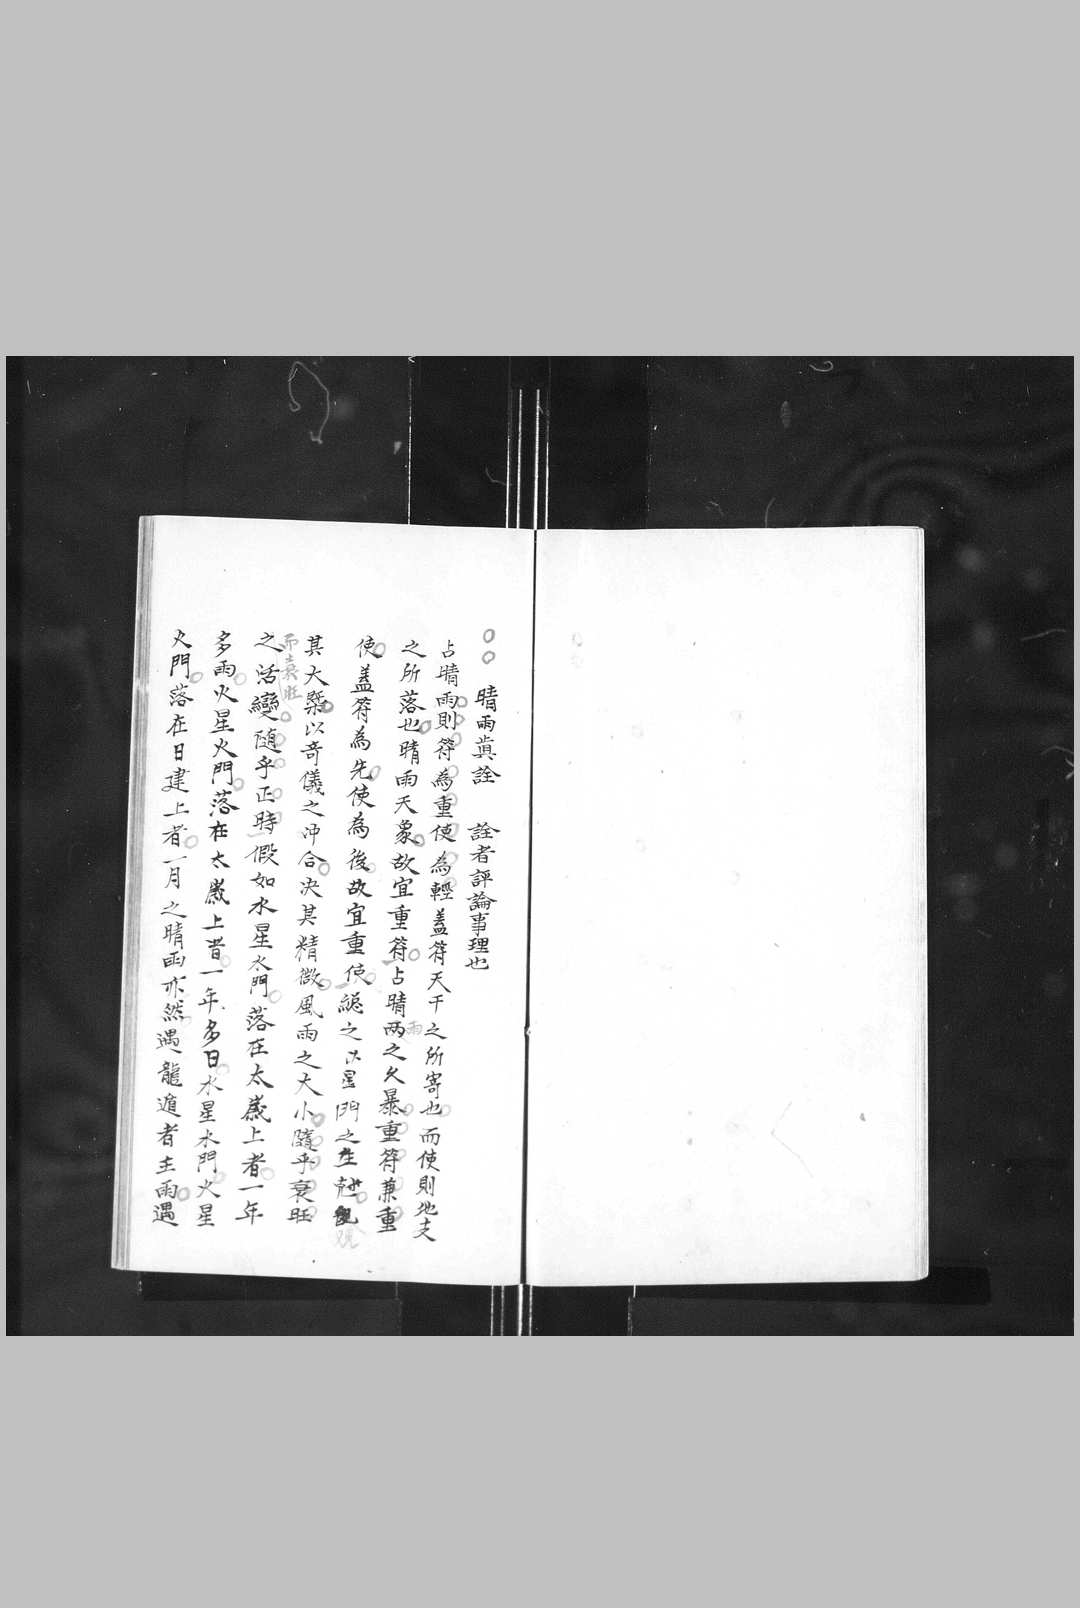 晴雨眞詮　詮者評論事理也
占晴雨則符為重使為輕蓋符天干之所寄也而使則地支
之所落也晴雨天象故宜重符占晴雨之久暴重符兼重
使蓋符為先使為後故宜重使總之以星門之生尅觀
其大槩以奇儀之冲合决其精微風雨之大小隨乎衰旺
之活變隨乎正時假如水星水門落在太歲上者一年
多雨火星火門落在太歲上者一年多日水星水門火星
火門落在日建上者一月之晴雨亦然遇龍遁者主雨遇